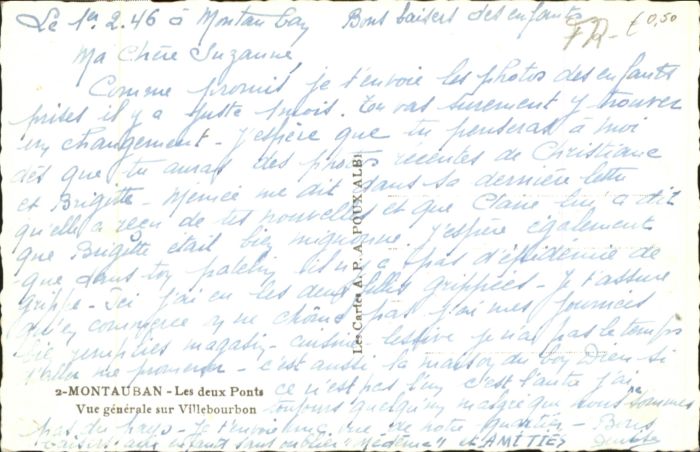 Le 1er 2.46 à Montau Gay Bons baisers des enfants FR-€ 0,50
Ma Chère Suzanne,
Comme promis, je t'envoie les photos des enfants
prises il y a juste 1 mois. Tu vas surement y trouver
un changement - J'espère que tu penseras à moi
dès que tu auras des photos récentes de Christiane
et Brigitte - me dit dans sa dernière lettre
qu'elle a reçu de tes nouvelles et que Claire lui a dit
que Brigitte était bien mignonne. J'espère également
que dans ton patelin il n'y a pas d'épidémie de
grippe - Ici j'ai eu les deux filles grippées - Je t'assure
qu'en commerce on ne chôme pas j'ai mes journées
bien remplies magasin - cuisine lessive je n'ai pas le temps
d'aller me promener - c'est aussi la maison du bon Dieu si
ce n'est pas l'un c'est l'autre j'ai
toujours quelqu'un malgré que nous ne sommes
pas du pays - Je t'envoie une vue de notre quartier - Bons
baisers aux enfants sans oublier "" et AMITIÉS
Les Cartes A. P. A. POUX ALBI
2-MONTAUBAN - Les deux Ponts
Vue générale sur Villebourbon